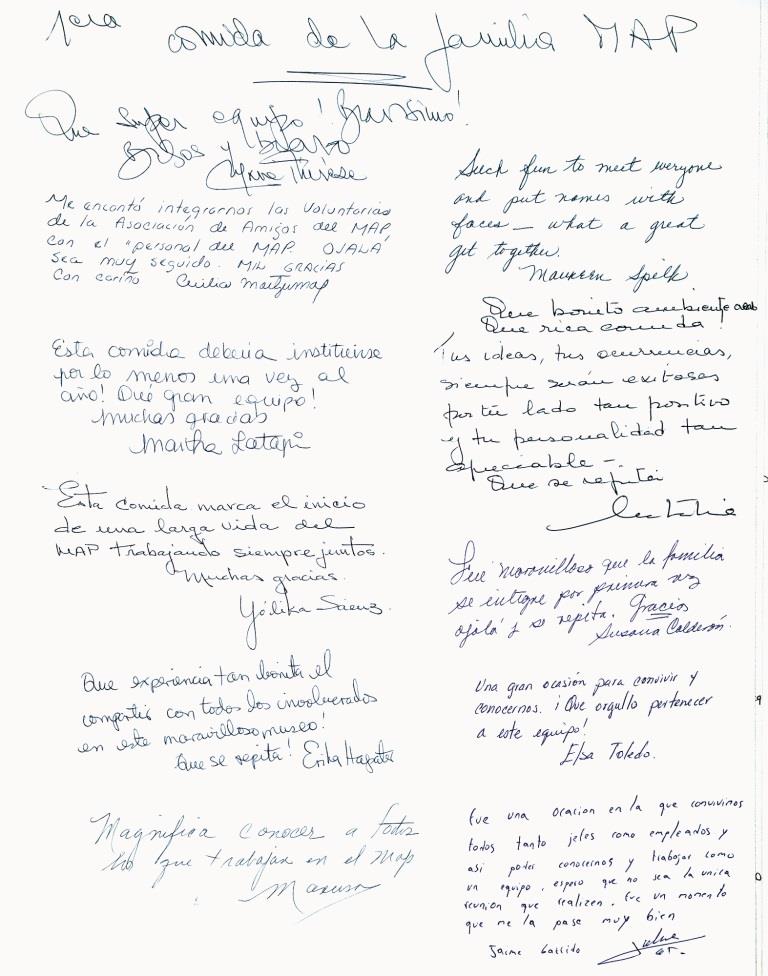 1era comida de la familia MAP
Que super equipo! Bravisimo!
Besos y bravo
Therese
Me encantó integrarnos las Voluntarias
de la Asociación de Amigos del MAP
con el "personal del MAP. OJALÁ
sea muy seguido. MIL GRACIAS
Con cariño Cecilia
Esta comida deberia instituirse
por lo menos una vez al
año! Qué gran equipo!
Muchas gracias
Martha Latapi
Esta comida marca el inicio
de una larga vida del
MAP trabajando siempre juntos.
Muchas gracias.
Yólika Sáenz.
Que experiencia tan bonita el
compartir con todos los involucrados
en este maravilloso museo!
Que se repita! Erika
Magnifica conocer a todos
lo que trabajan en el Map
Such fun to meet everyone
and put names with
faces — what a great
get together.
Maureen Spilk
Que bonito ambiente
Que rica comida!
Tus ideas, tus ocurrencias,
siempre serán exitosas
por tu lado tan positivo
y tu personalidad tan
apreciable —
Que se repita
Fue maravilloso que la familia
se integre por primera vez
ojalá y se repita. Gracias
Susana Calderón.
Una gran ocasión para convivir y
conocernos. ¡Que orgullo pertenecer
a este equipo!
Elsa Toledo.
Fue una ocacion en la que convivimos
todos tanto jefes como empleados y
asi poder conocernos y trabajar como
un equipo, espero que no sea la unica
reunion que realizen. Fue un momento
que me la pase muy bien
Jaime Garrido